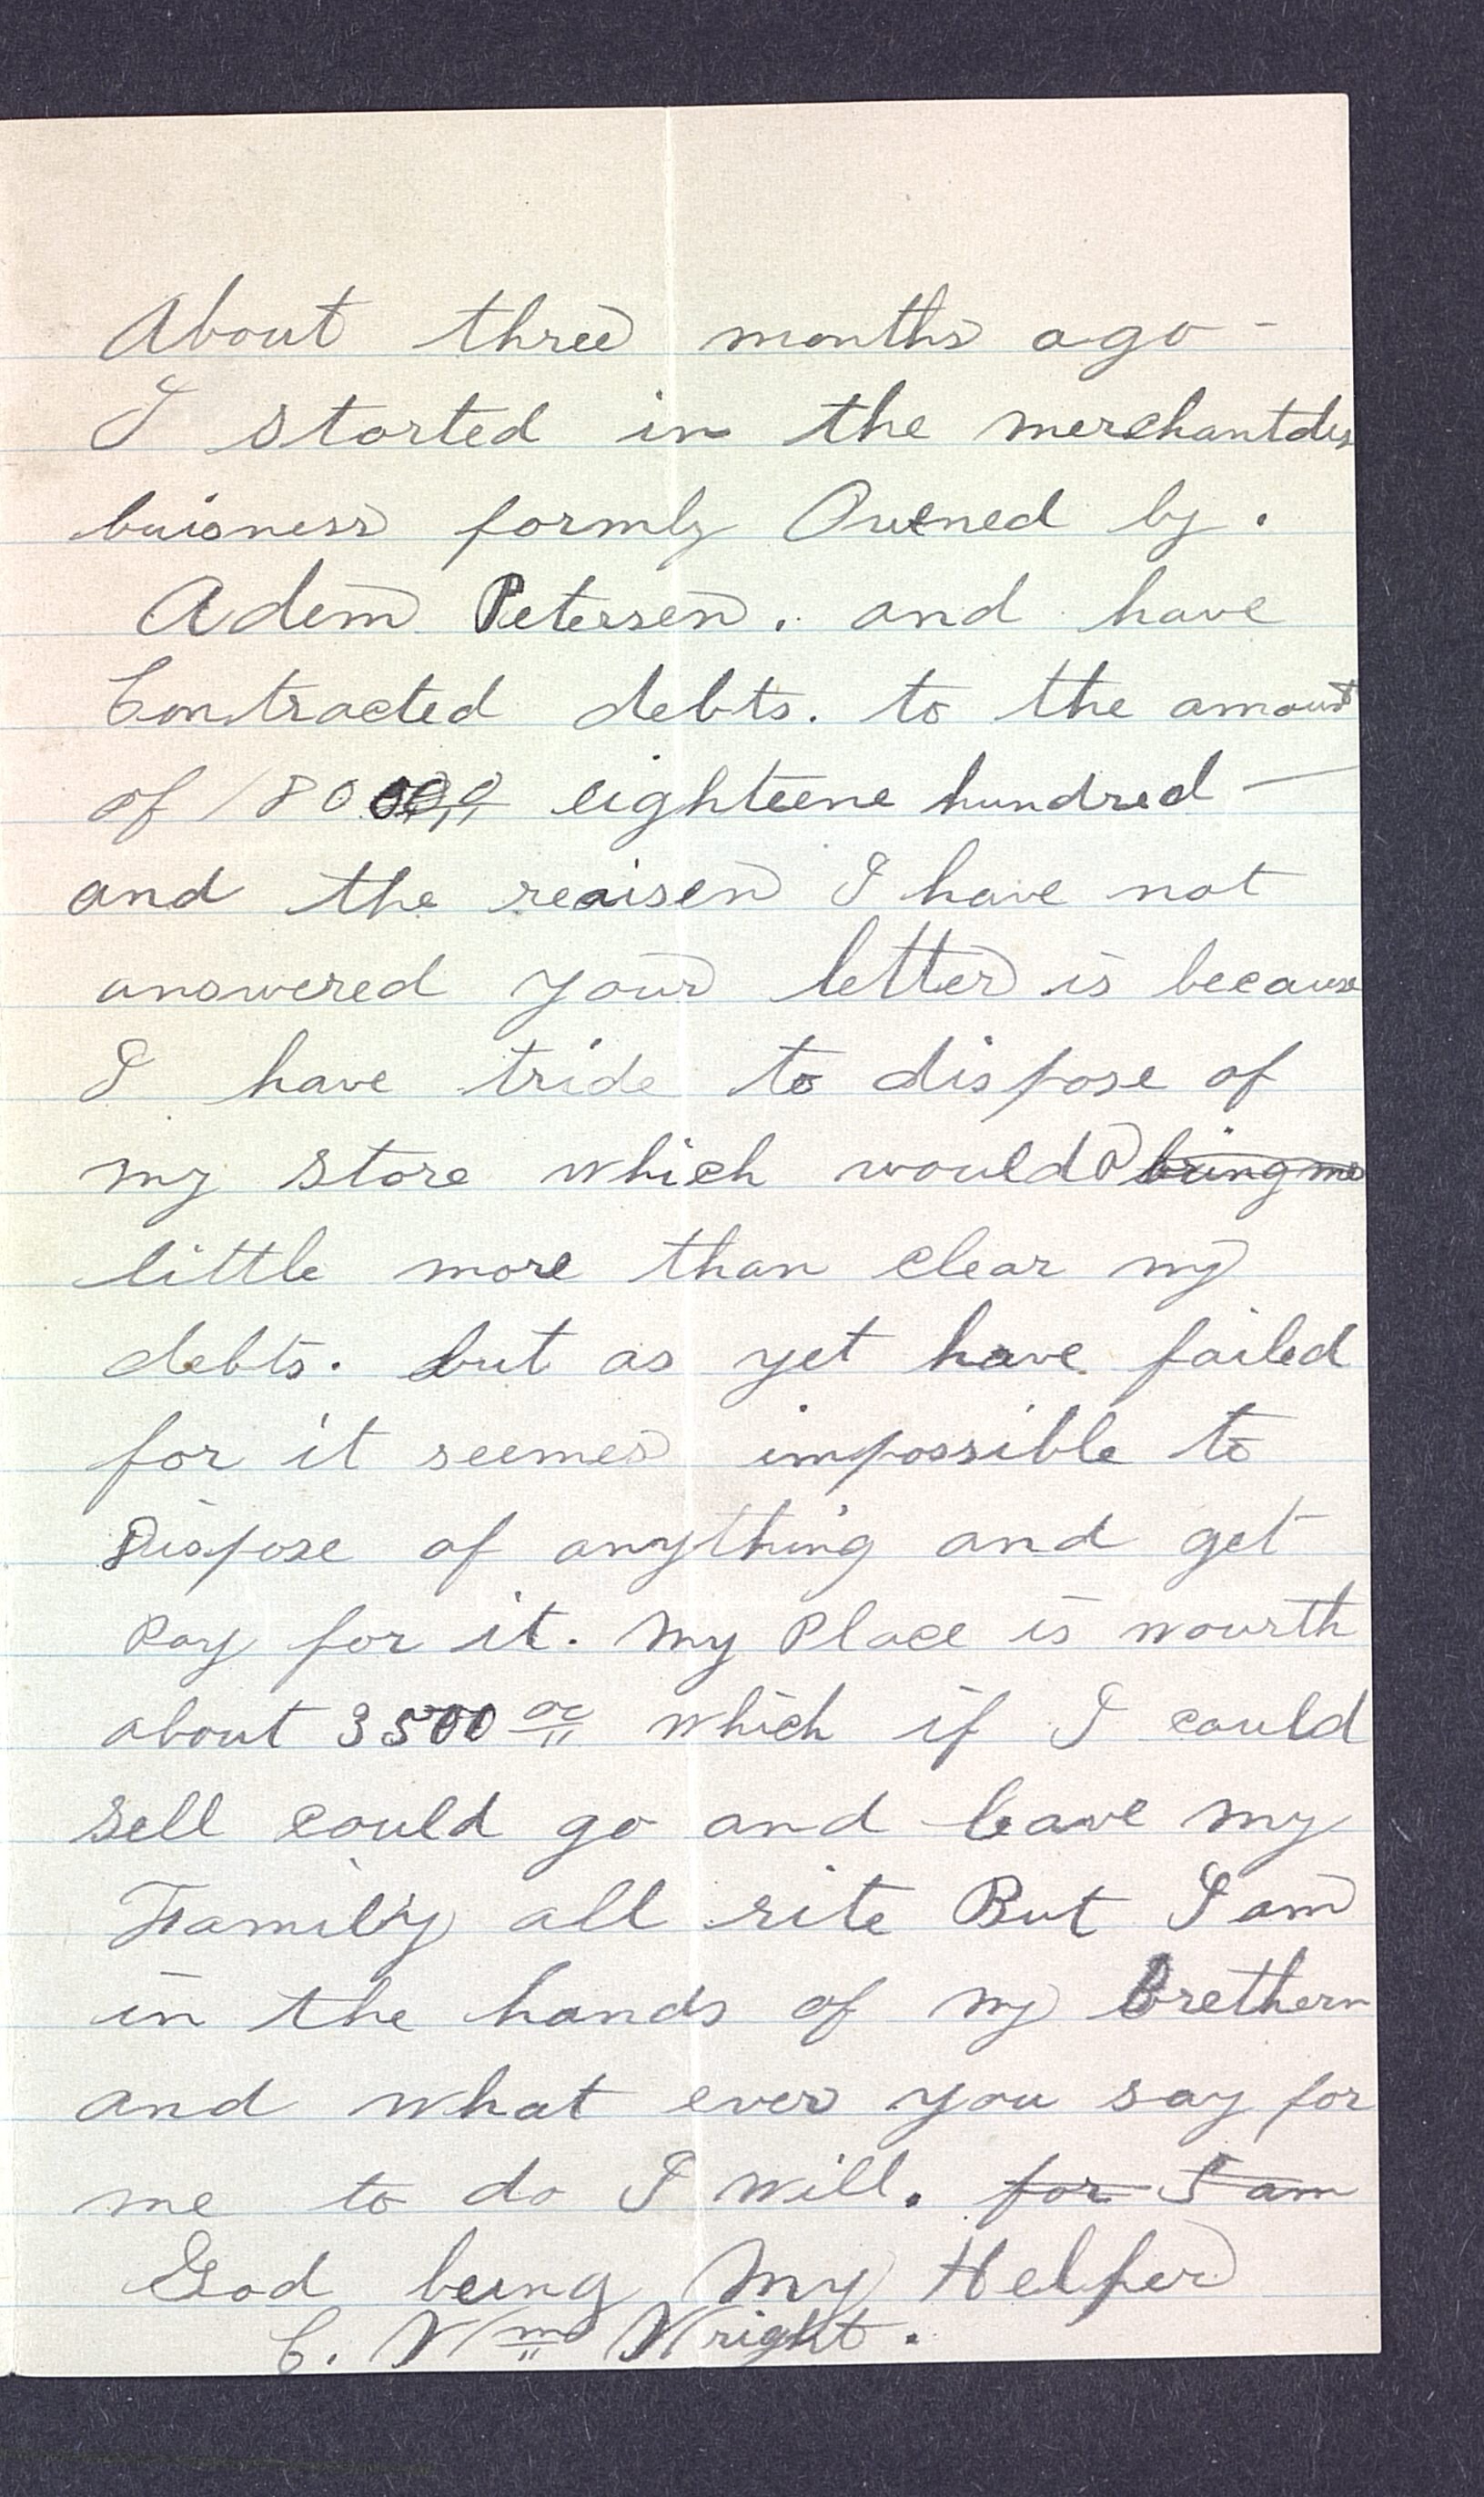 About three months ago -
I started in the merchantdis
buisness formly Owened by.
Adem Petersen. and have
Contracted debts. to the amount
of 1800 eighteene hundred -
and the reaisen I have not
answered your letter is because
I have tride to dispose of
my store which would bring me
little more than clear my
debts. but as yet have failed
for it seemes impossible to
Dispose of anything and get
pay for it. My place is wourth
about 3500 00 which if I could
sell could go and leave my
Family all rite But I am
in the hands of my brethern
and what ever you say for
me to do I will. for I am
God being My Helper
C. Wm Wright.